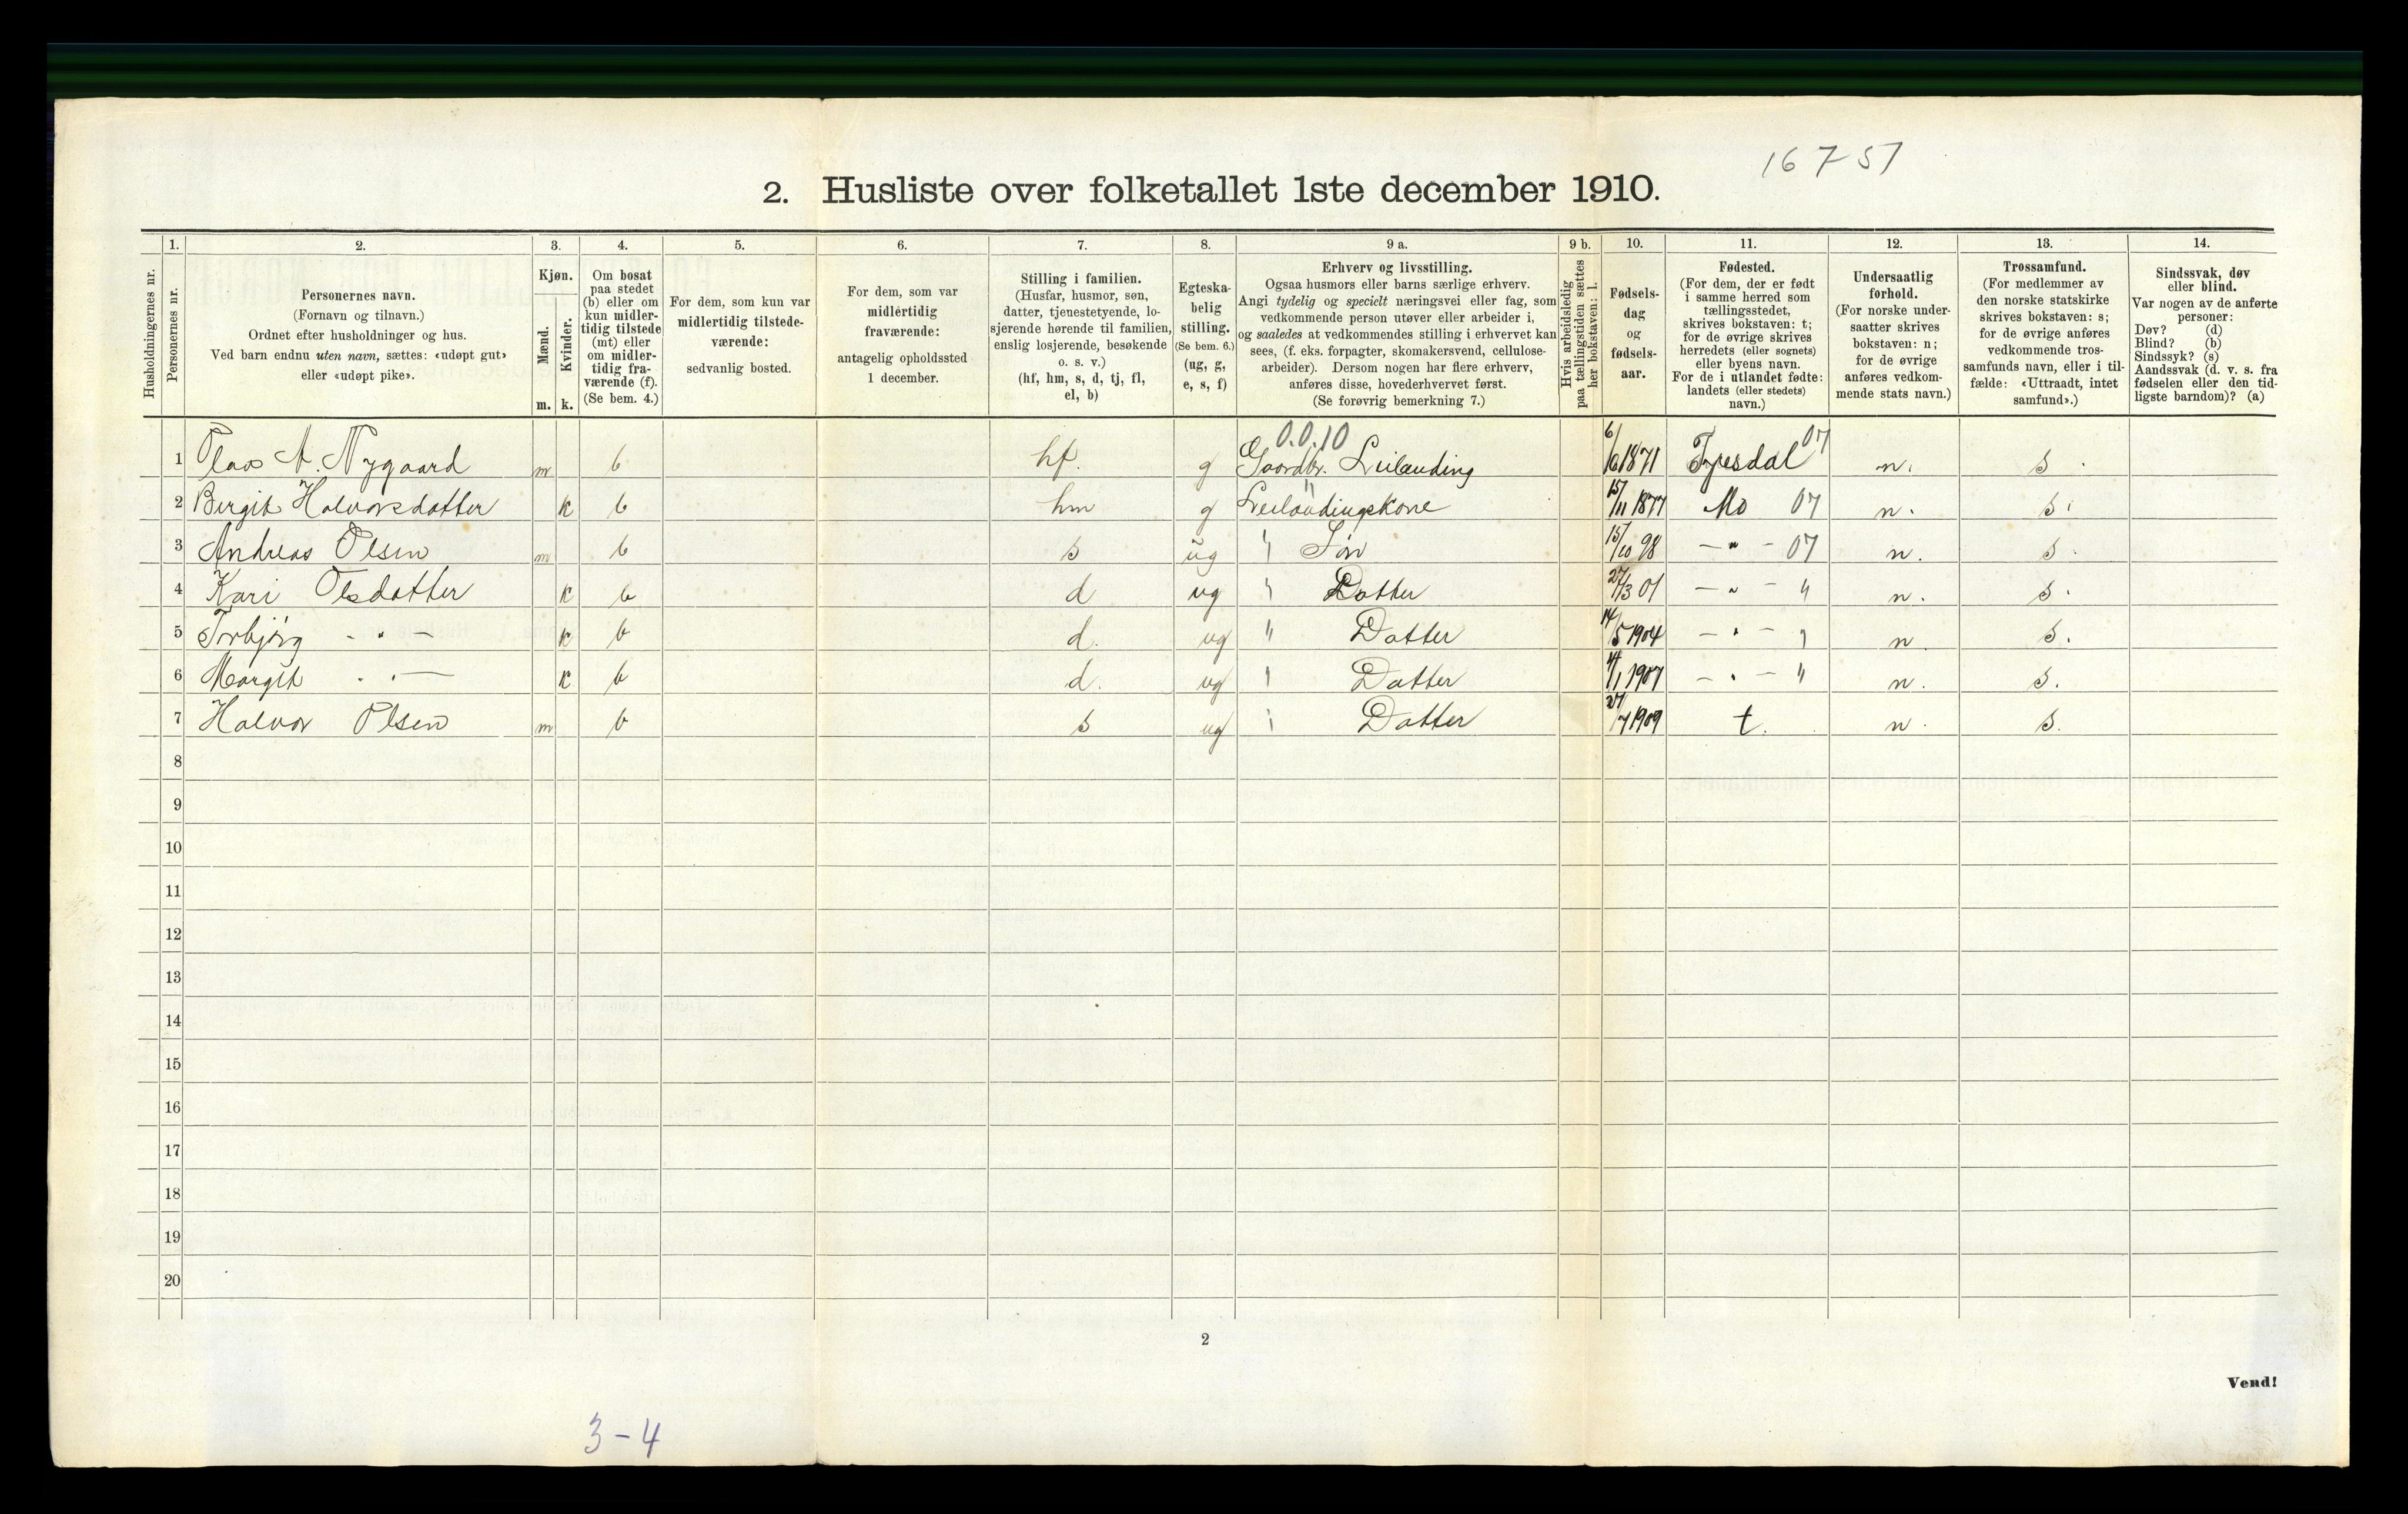 16751
2. Husliste over folketallet 1ste december 1910.
1. 2. 3. 4. 5. 6. 7. 8. 9 a. 9 b. 10. 11. 12. 13. 14.
Husholdningernes nr.
Personernes nr.
Personernes navn.
(Fornavn og tilnavn.)
Ordnet efter husholdninger og hus.
Ved barn endnu uten navn, sættes: «udøpt gut»
eller «udøpt pike».
Kjøn.
Mænd.
Kvinder.
m. k.
Om bosat
paa stedet
(b) eller om
kun midler-
tidig tilstede
(mt) eller
om midler-
tidig fra-
værende (f).
(Se bem. 4.)
For dem, som kun var
midlertidig tilstede-
værende:
sedvanlig bosted.
For dem, som var
midlertidig
fraværende:
antagelig opholdssted
1 december.
Stilling i familien.
(Husfar, husmor, søn,
datter, tjenestetyende, lo-
sjerende hørende til familien,
enslig losjerende, besøkende
o. s. v.)
(hf, hm, s, d, tj, fl,
el, b)
Egteska-
belig
stilling.
(Se bem. 6.)
(ug, g,
e, s, f)
Erhverv og livsstilling.
Ogsaa husmors eller barns særlige erhverv.
Angi tydelig og specielt næringsvei eller fag, som
vedkommende person utøver eller arbeider i,
og saaledes at vedkommendes stilling i erhvervet kan
sees, (f. eks. forpagter, skomakersvend, cellulose-
arbeider). Dersom nogen har flere erhverv,
anføres disse, hovederhvervet først.
(Se forøvrig bemerkning 7.)
Hvis arbeidsledig
paa tællingstiden sættes
her bokstaven: l.
Fødsels-
dag
og
fødsels-
aar.
Fødested.
(For dem, der er født
i samme herred som
tællingsstedet,
skrives bokstaven: t;
for de øvrige skrives
herredets (eller sognets)
eller byens navn.
For de i utlandet fødte:
landets (eller stedets)
navn.)
Undersaatlig
forhold.
(For norske under-
saatter skrives
bokstaven: n;
for de øvrige
anføres vedkom-
mende stats navn.)
Trossamfund.
(For medlemmer av
den norske statskirke
skrives bokstaven: s;
for de øvrige anføres
vedkommende tros-
samfunds navn, eller i til-
fælde: «Uttraadt, intet
samfund».)
Sindssvak, døv
eller blind.
Var nogen av de anførte
personer:
Døv? (d)
Blind? (b)
Sindssyk? (s)
Aandssvak (d. v. s. fra
fødselen eller den tid-
ligste barndom)? (a)
0.0.10
1 Olav A. Nygaard m b hf. g Gaardbr. Leilænding 6/6 1871 Fyresdal 07 n. s.
2 Birgit Halvorsdatter k b hm g Leilændingskone 15/11 1877 Mo 07 n. s.
3 Andreas Olsen m b s ug " Søn 15/10 98 — " — 07 n. s.
4 Kari Olsdatter k b d ug " Datter 27/3 01 — " — " n. s.
5 Torbjörg - " — k b d. ug " Datter 14/5 1904 — " — " n s.
6 Margit - " — k b d. ug " Datter 4/1 1907 — " — " n. s.
7 Halvor Olsen m b s ug " Datter 27/7 1909 t. n. s.
8
9
10
11
12
13
14
15
16
17
18
19
20
2
Vend!
3-4